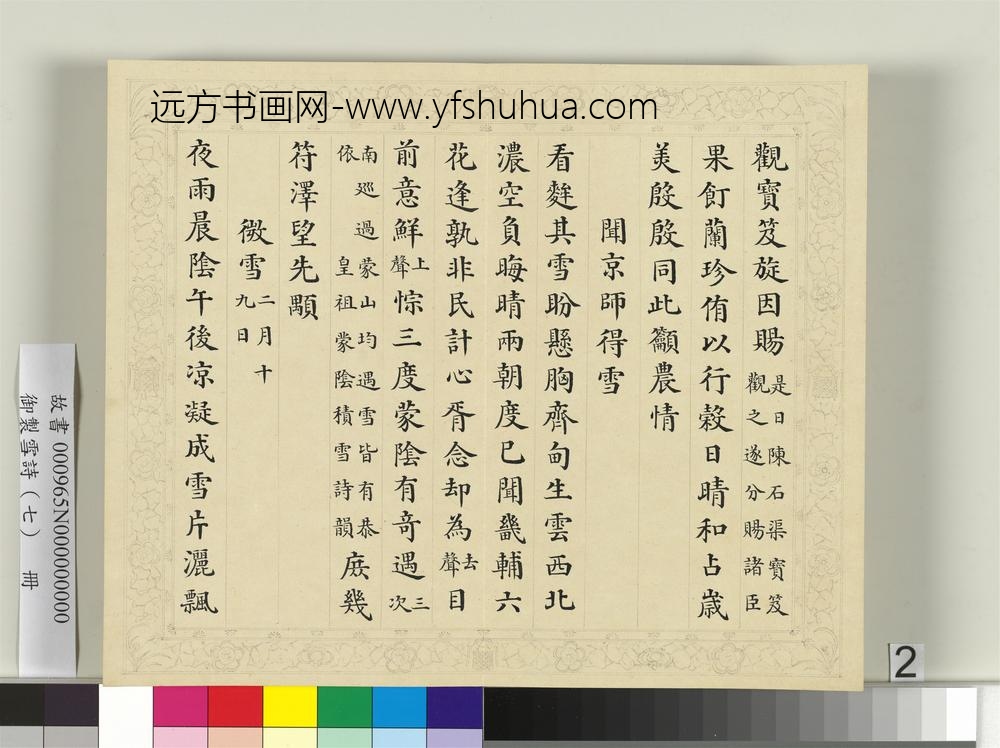 远方书画网-www.yfshuhua.com
觀寶笈旋因賜是日陳石渠寶笈觀之遂分賜諸臣
果飣蘭珍侑以行穀日晴和占歲
美殷殷同此籲農情
聞京師得雪
看麰其雪盼懸胸齊甸生雲西北
濃空負晦晴兩朝度已聞畿輔六
花逢孰非民計心胥念却為去聲目
前意鮮上聲悰三度蒙陰有奇遇三次
南巡過蒙山均遇雪皆有恭依皇祖蒙陰積雪詩韻庶幾
符澤望先顒
微雪二月十九日
夜雨晨陰午後凉凝成雪片灑飄
故書000965N000000000
御製雪詩（七） 冊
2